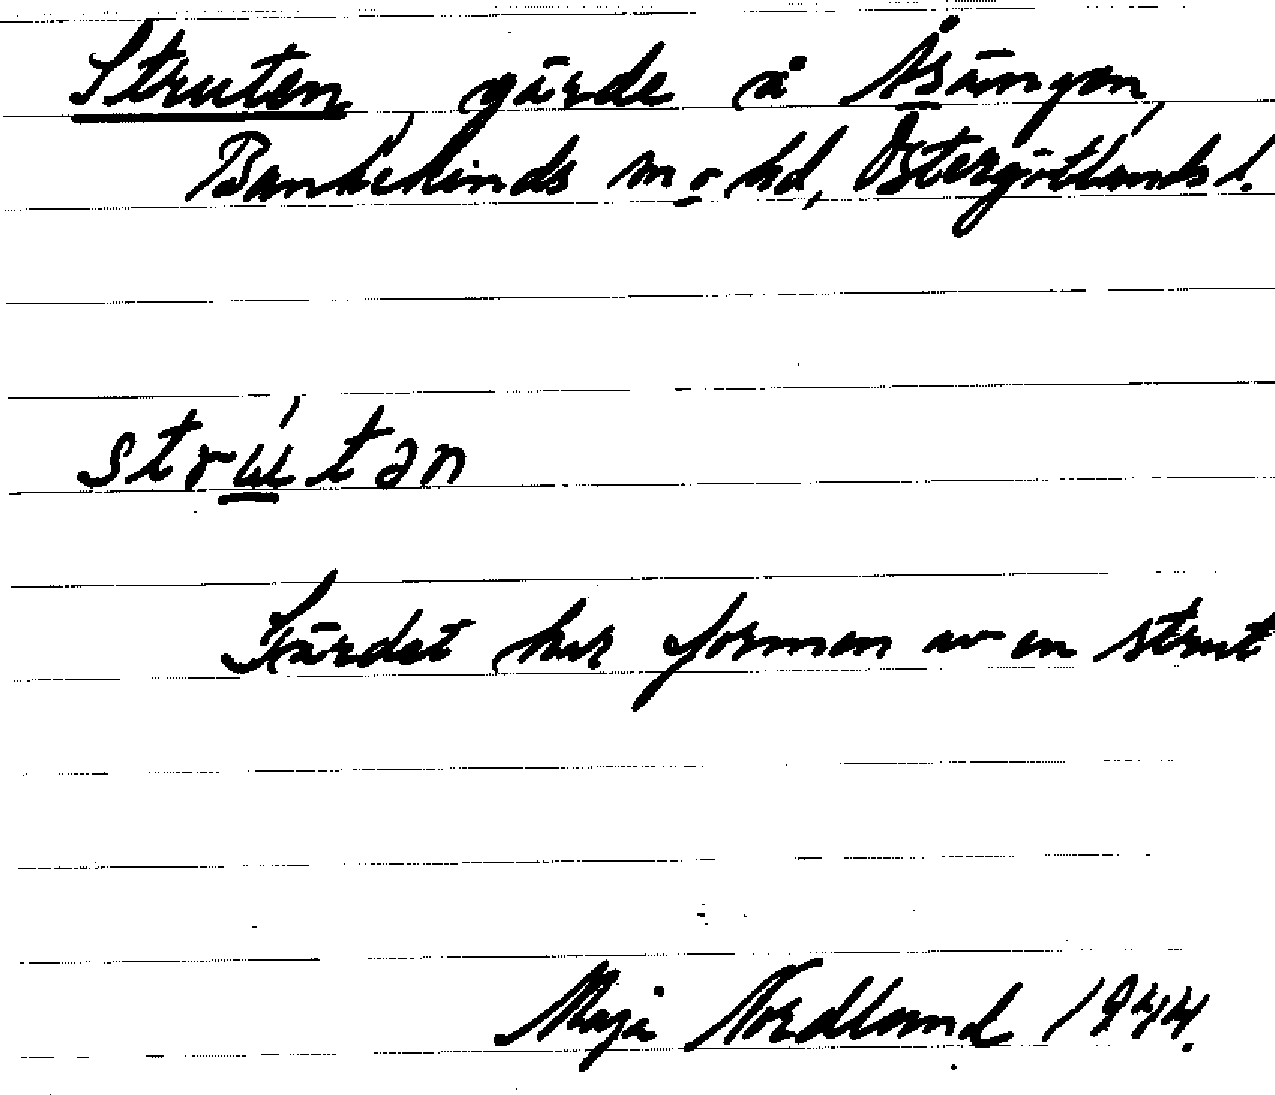 Struten, gärde å Åsängen,
Bankekinds sn o. hd, Östergötlands l.
strɯ́tən
Gärdet har formen av en strut
Maja Nordlund 1944.